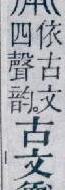 依古文
四聲韵。
古文